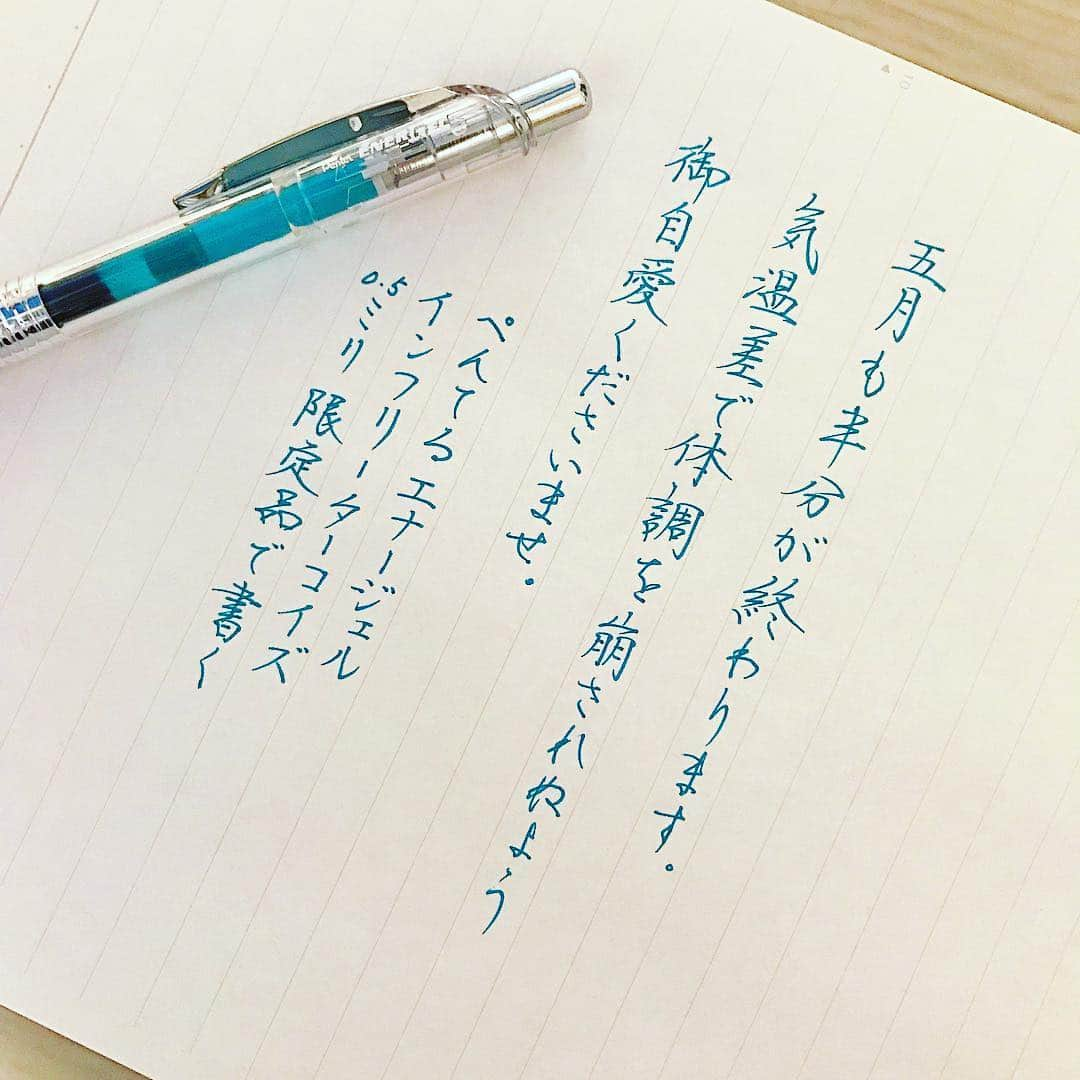 五月も半分が終わります。
気温差で体調を崩されぬよう
御自愛くださいませ。
ぺんてるエナージェル
インフリーターコイズ
0.5ミリ 限定品で書く
Pentel ENERGEL